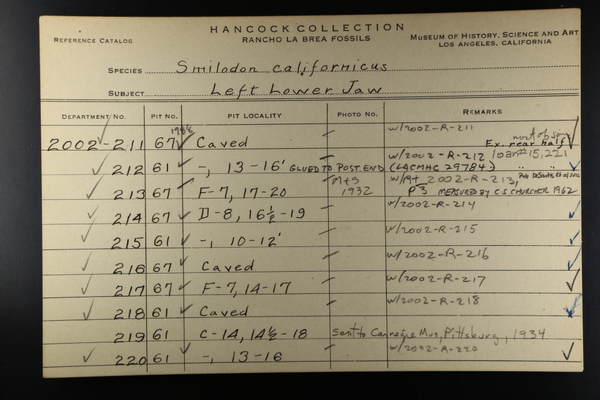 HANCOCK COLLECTION
REFERENCE CATALOG RANCHO LA BREA FOSSILS MUSEUM OF HISTORY, SCIENCE AND ART
LOS ANGELES, CALIFORNIA
SPECIES Smilodon californicus
SUBJECT Left Lower Jaw
DEPARTMENT NO. PIT NO. PIT LOCALITY PHOTO NO. REMARKS
2002-211 67 Caved w/2002-R-211 Ex. rear half
212 61 -, 13-16' GLUED TO POST. END w/2002-R-212 loan #15,221 (LACMHC 29784)
213 67 F-7, 17-20 M+S 1932 w/Rt 2002-R-213, P3 MEASURED BY C.S. CHURCHER 1962
214 67 D-8, 16½-19 w/2002-R-214
215 61 -, 10-12' w/2002-R-215
216 67 Caved w/2002-R-216
217 67 F-7, 14-17 w/2002-R-217
218 61 Caved w/2002-R-218
219 61 C-14, 14½-18 Sent to Carnegie Mus, Pittsburg, 1934
220 61 -, 13-16 w/2002-R-220